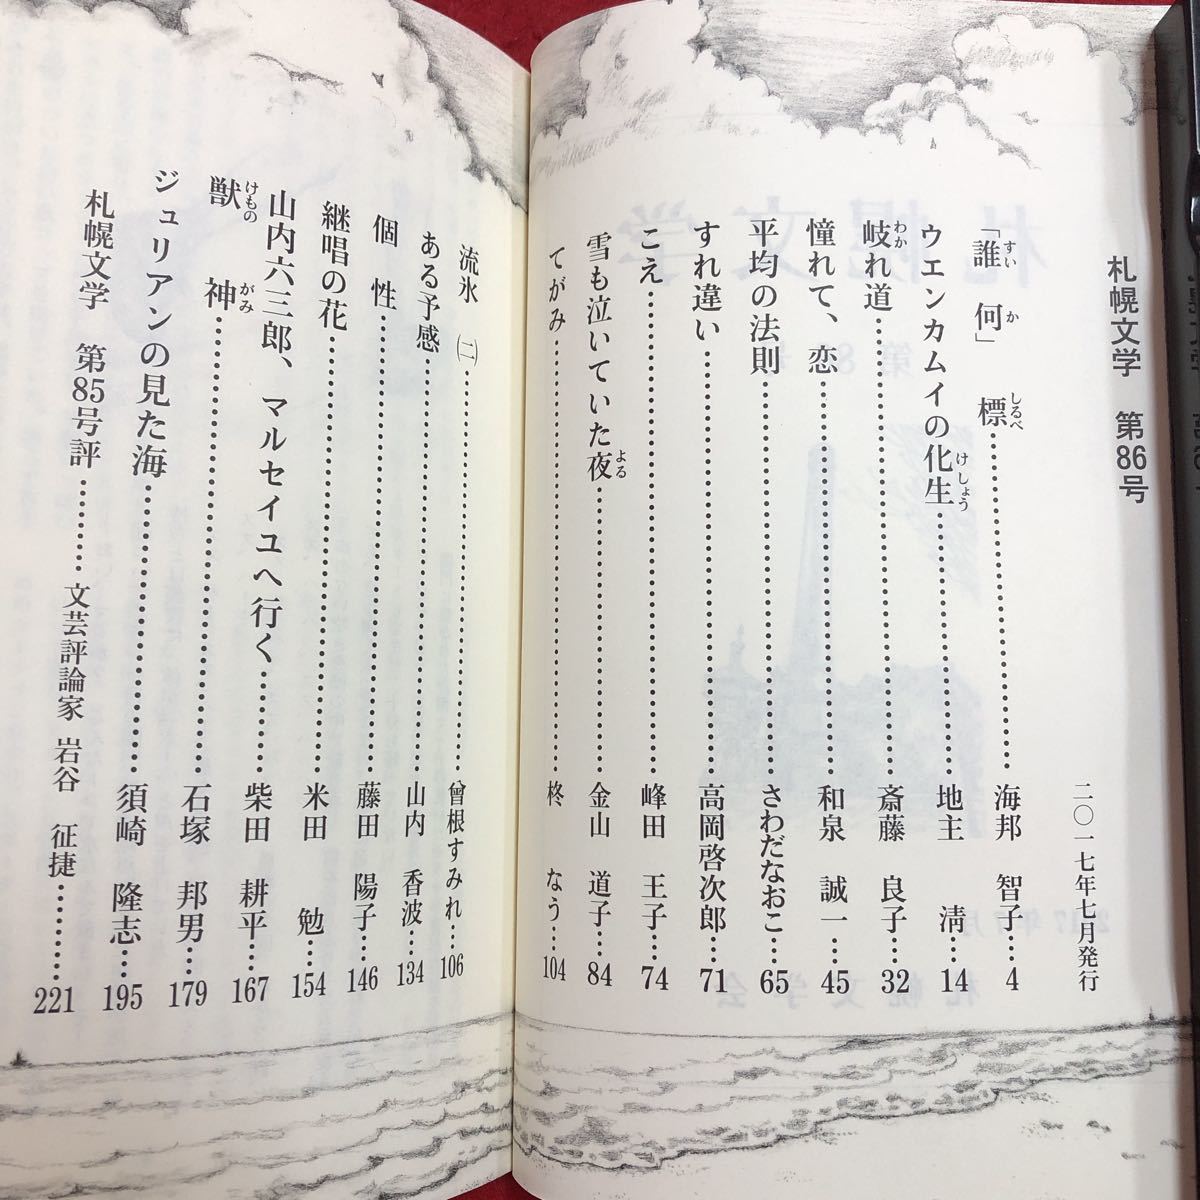 札幌文学　第86号
二〇一七年七月発行
「誰何」標……海邦　智子…4
すい　か　しるべ
ウエンカムイの化生……地主　清…14
けしょう
岐れ道……斎藤　良子…32
わか
憧れて、恋……和泉　誠一…45
平均の法則……さわだなおこ…65
すれ違い……高岡啓次郎…71
こえ……峰田　王子…74
雪も泣いていた夜……金山　道子…84
よる
てがみ……柊　なう…104
流氷　㈡……曾根すみれ…106
ある予感……山内　香波…134
個　性……藤田　陽子…146
継唱の花……米田　勉…154
山内六三郎、マルセイユへ行く……柴田　耕平…167
獣　神……石塚　邦男…179
けもの　がみ
ジュリアンの見た海……須崎　隆志…195
札幌文学　第85号評……文芸評論家　岩谷　征捷……221